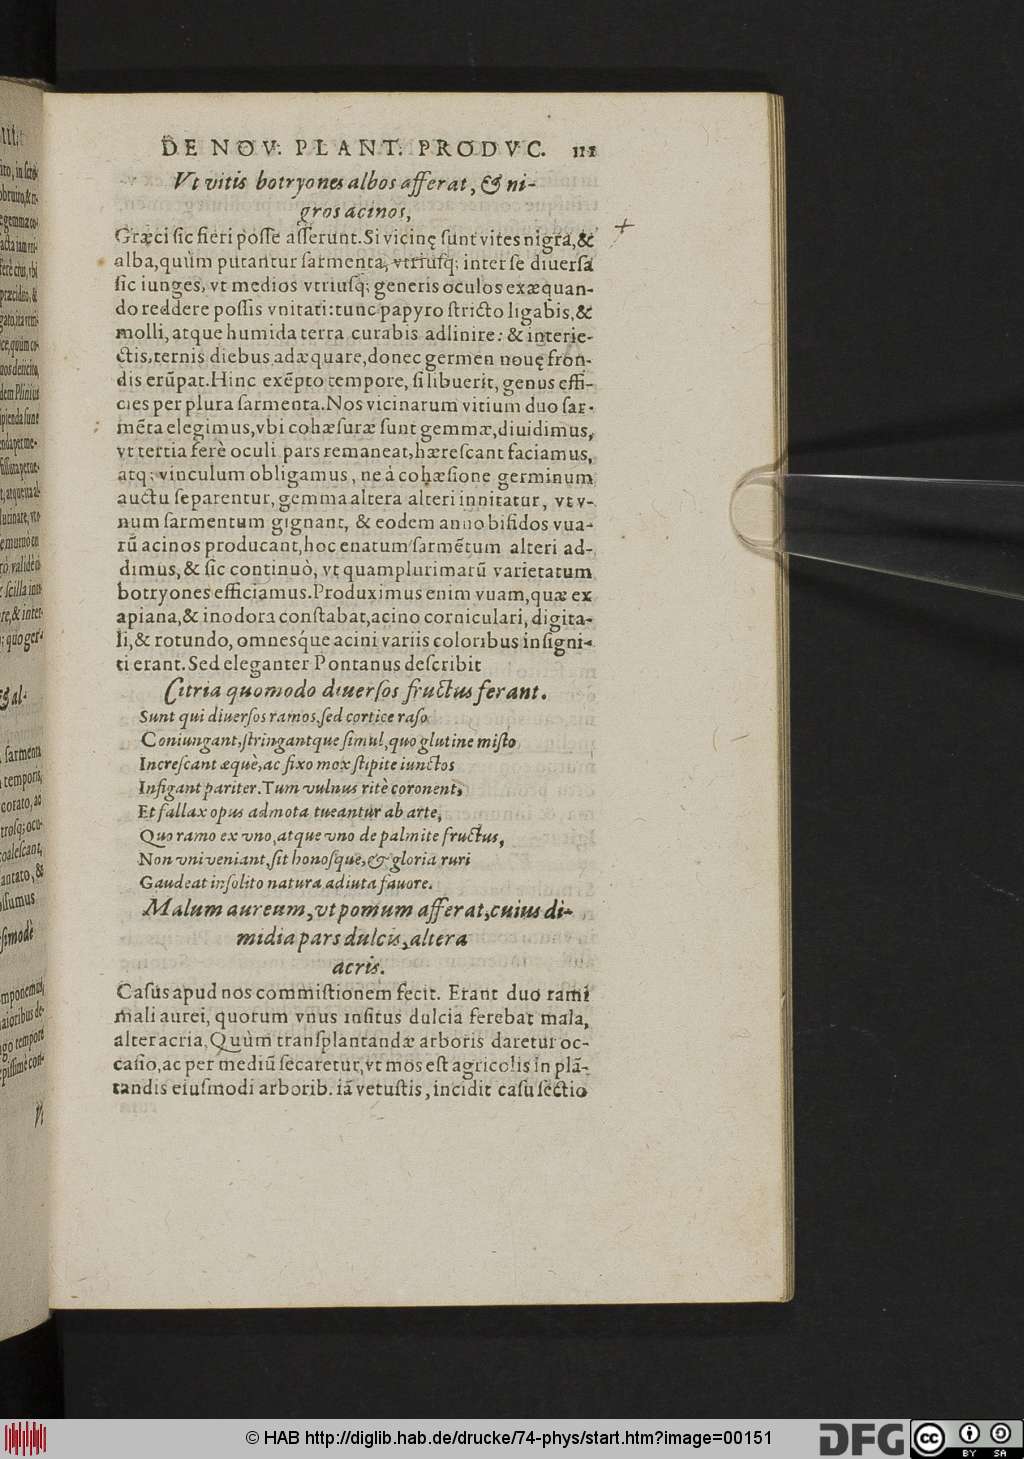 DE NOV. PLANT. PRODVC. 111
Vt vitis botryones albos afferat, & ni-
gros acinos,
Græci sic fieri posse asserunt. Si vicinę sunt vites nigra, &
alba, quùm putantur sarmenta, vtriusq; inter se diuersa
sic iunges, vt medios vtriusq; generis oculos exæquan-
do reddere possis vnitati: tunc papyro stricto ligabis, &
molli, atque humida terra curabis adlinire: & interie-
ctis, ternis diebus adæquare, donec germen nouę fron-
dis erũpat. Hinc exẽpto tempore, si libuerit, genus effi-
cies per plura sarmenta. Nos vicinarum vitium duo sar-
mẽta elegimus, vbi cohæsuræ sunt gemmæ, diuidimus,
vt tertia ferè oculi pars remaneat, hærescant faciamus,
atq; vinculum obligamus, ne à cohæsione germinum
auctu separentur, gemma altera alteri innitatur, vt v-
num sarmentum gignant, & eodem anno bifidos vua-
rũ acinos producant, hoc enatum sarmẽtum alteri ad-
dimus, & sic continuò, vt quamplurimarũ varietatum
botryones efficiamus. Produximus enim vuam, quæ ex
apiana, & inodora constabat, acino corniculari, digita-
li, & rotundo, omnesq́ue acini variis coloribus insigni-
ti erant. Sed eleganter Pontanus describit
Citria quomodo diuersos fructus ferant.
Sunt qui diuersos ramos, sed cortice raso
Coniungant, stringantque simul, quo glutine misto
Increscant æquè, ac fixo mox stipite iunctos
Infigant pariter. Tum vulnus ritè coronent,
Et fallax opus admota tueantur ab arte,
Quo ramo ex vno, atque vno de palmite fructus,
Non vni veniant, sit honosque, & gloria ruri
Gaudeat insolito natura adiuta fauore.
Malum aureum, vt pomum afferat, cuius di-
midia pars dulcis, altera
acris.
Casus apud nos commistionem fecit. Erant duo rami
mali aurei, quorum vnus insitus dulcia ferebat mala,
alter acria, Quùm transplantandæ arboris daretur oc-
casio, ac per mediũ secaretur, vt mos est agricolis in plã-
tandis eiusmodi arborib. iã vetustis, incidit casu sectio
© HAB http://diglib.hab.de/drucke/74-phys/start.htm?image=00151
DFG
cc BY SA